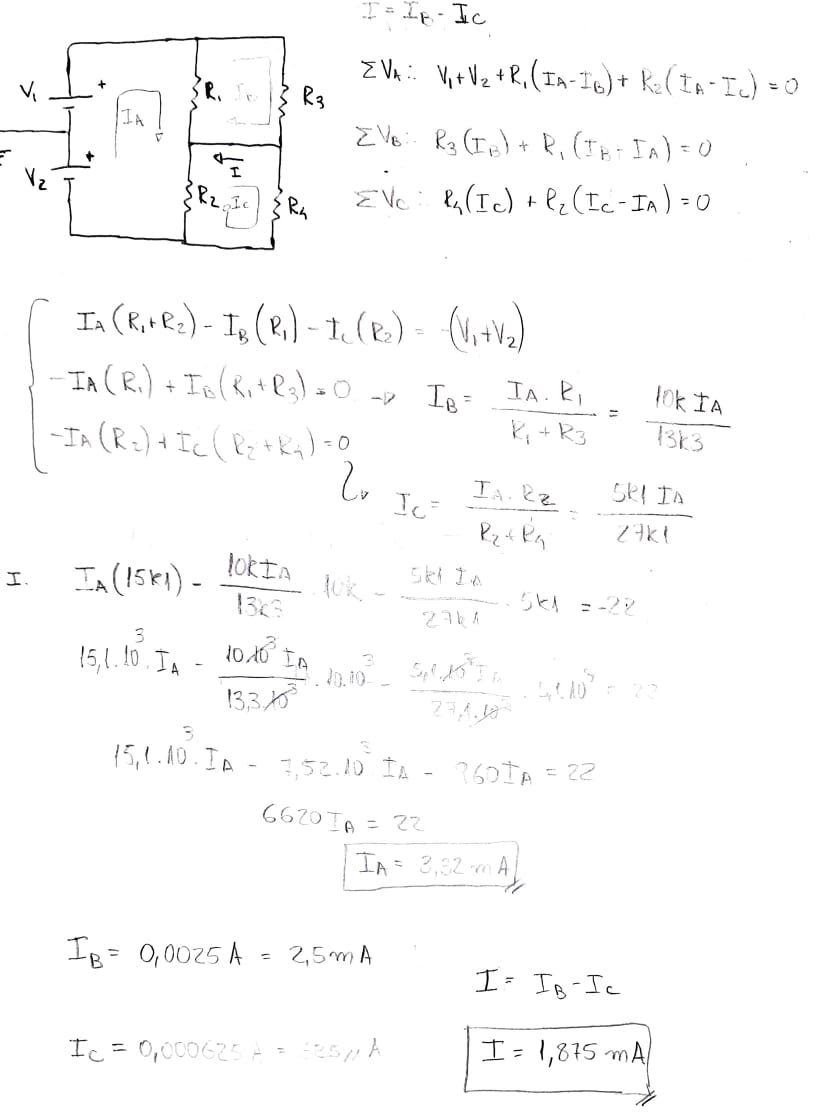 I = IB - IC
V1 + IA R1 IB R3
ΣVA: V1 + V2 + R1(IA - IB) + R2(IA - IC) = 0
ΣVB: R3(IB) + R1(IB - IA) = 0
V2 + I R2 IC R4
ΣVC: R4(IC) + R2(IC - IA) = 0
IA(R1+R2) - IB(R1) - IC(R2) = -(V1+V2)
-IA(R1) + IB(R1+R3) = 0 → IB = IA.R1 / R1+R3 = 10k IA / 13k3
-IA(R2) + IC(R2+R4) = 0
IC = IA.R2 / R2+R4 = 5k1 IA / 27k1
I. IA(15k1) - 10kIA / 13k3 . 10k - 5k1 IA / 27k1 . 5k1 = -22
15,1.10³.IA - 10.10³ IA / 13,3.10³ . 10.10³ - 5,1.10³ IA / 27,1.10³ . 5,1.10³ = 22
15,1.10³.IA - 7,52.10³ IA - 960IA = 22
6620IA = 22
IA = 3,32 mA
IB = 0,0025 A = 2,5mA
I = IB - IC
IC = 0,000625 A = 625µA
I = 1,875 mA